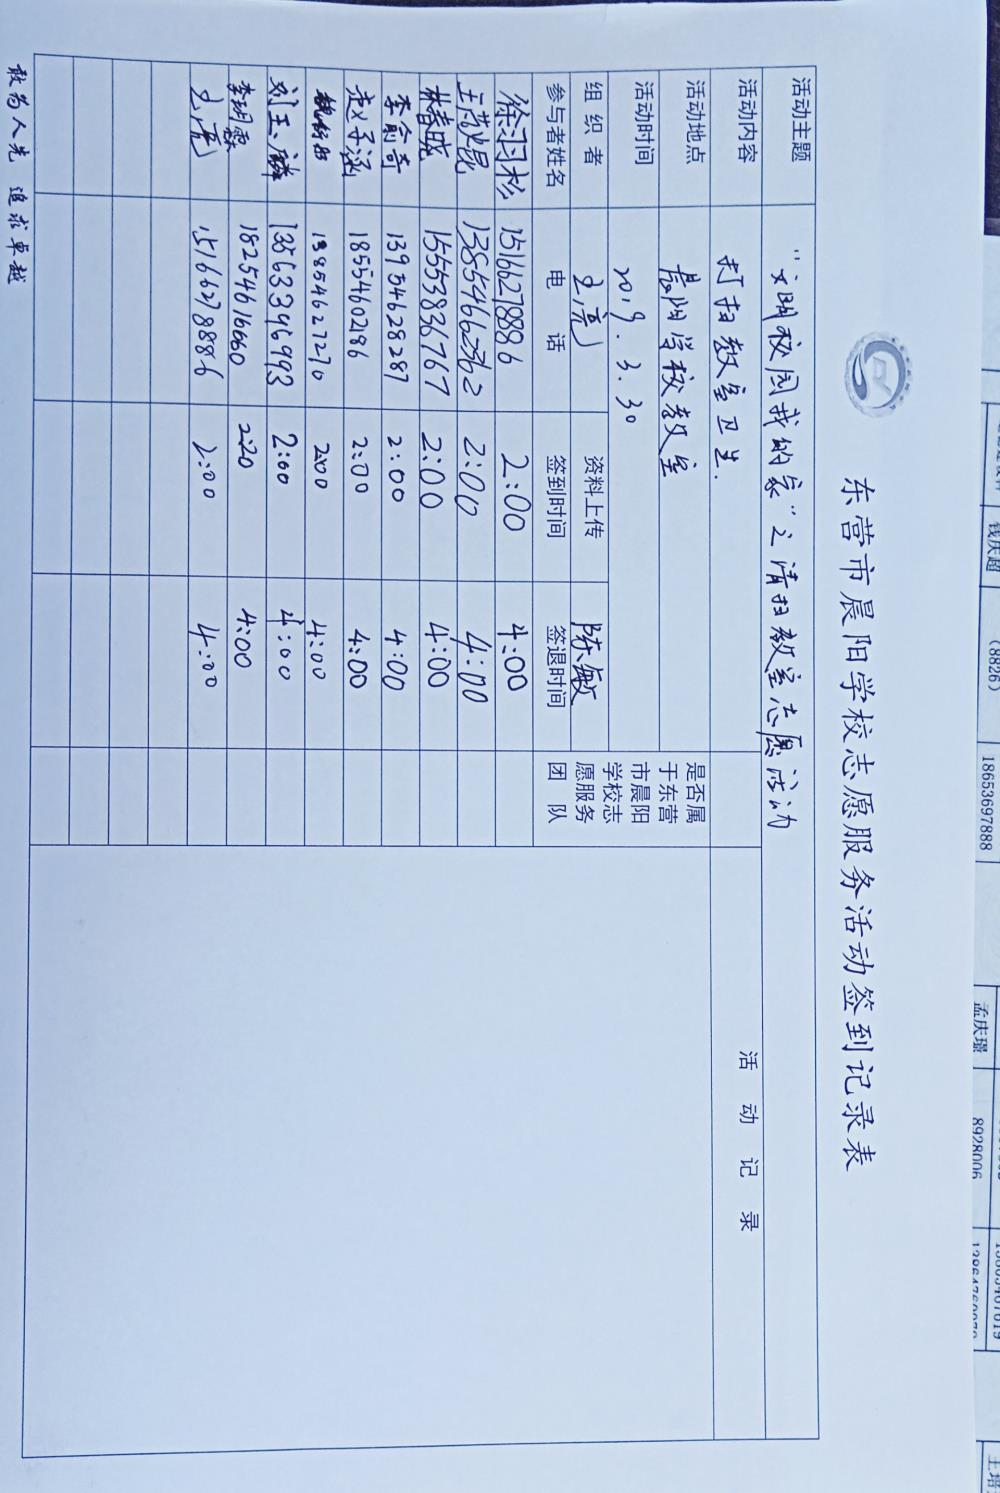 东营市晨阳学校志愿服务活动签到记录表
活动主题 “文明校园我的家”之清扫教室志愿活动
活动内容 打扫教室卫生. 活动记录
活动地点 晨阳学校教室 是否属于东营市晨阳学校志愿服务团队
活动时间 2019.3.30
组织者 王亮 资料上传 陈敏
参与者姓名 电话 签到时间 签退时间
徐羽杉 15166278886 2:00 4:00
13854662362 2:00 4:00
林春晓 15553836767 2:00 4:00
李俞奇 13954628287 2:00 4:00
赵子涵 18554602186 2:00 4:00
13854627270 2:00 4:00
刘玉麟 13563396993 2:00 4:00
李玥霖 18254616660 2:20 4:00
王亮 15166278886 2:00 4:00
敢为人先 追求卓越
钱庆超 (8826) 18653697888
孟庆璟 8928006